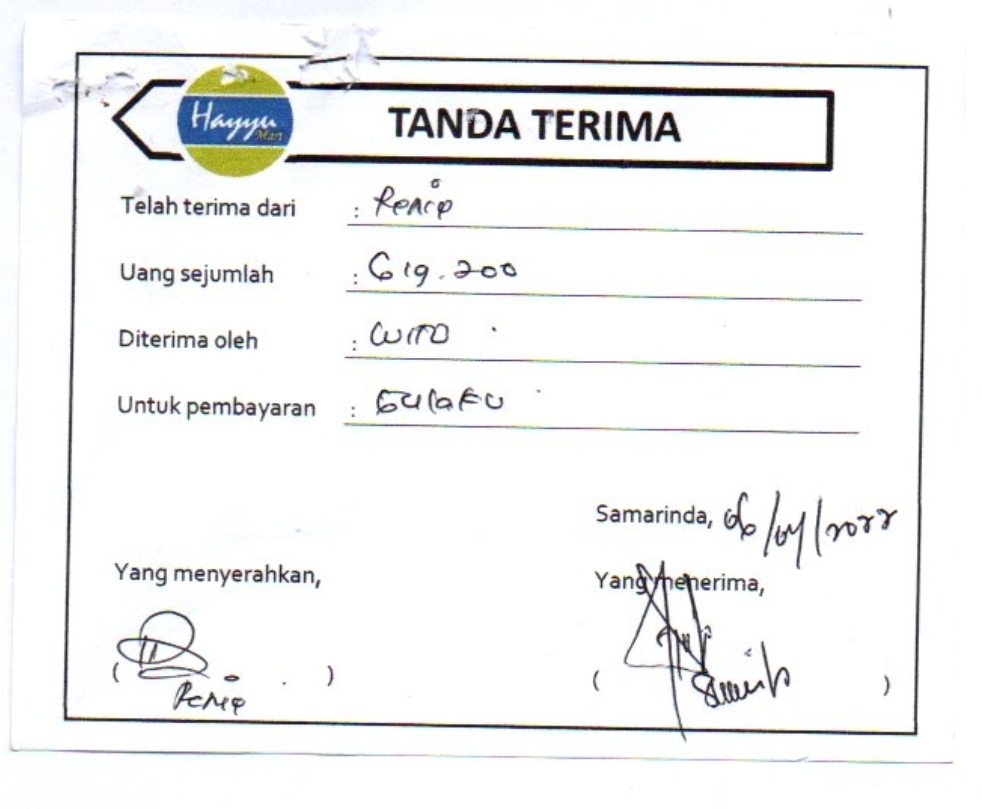 Hayyu
Mart
TANDA TERIMA
Telah terima dari :
Uang sejumlah : 619.200
Diterima oleh : WITO
Untuk pembayaran : Gulaku
Samarinda, 06/04/2022
Yang menyerahkan,
Yang menerima,
( )
( )